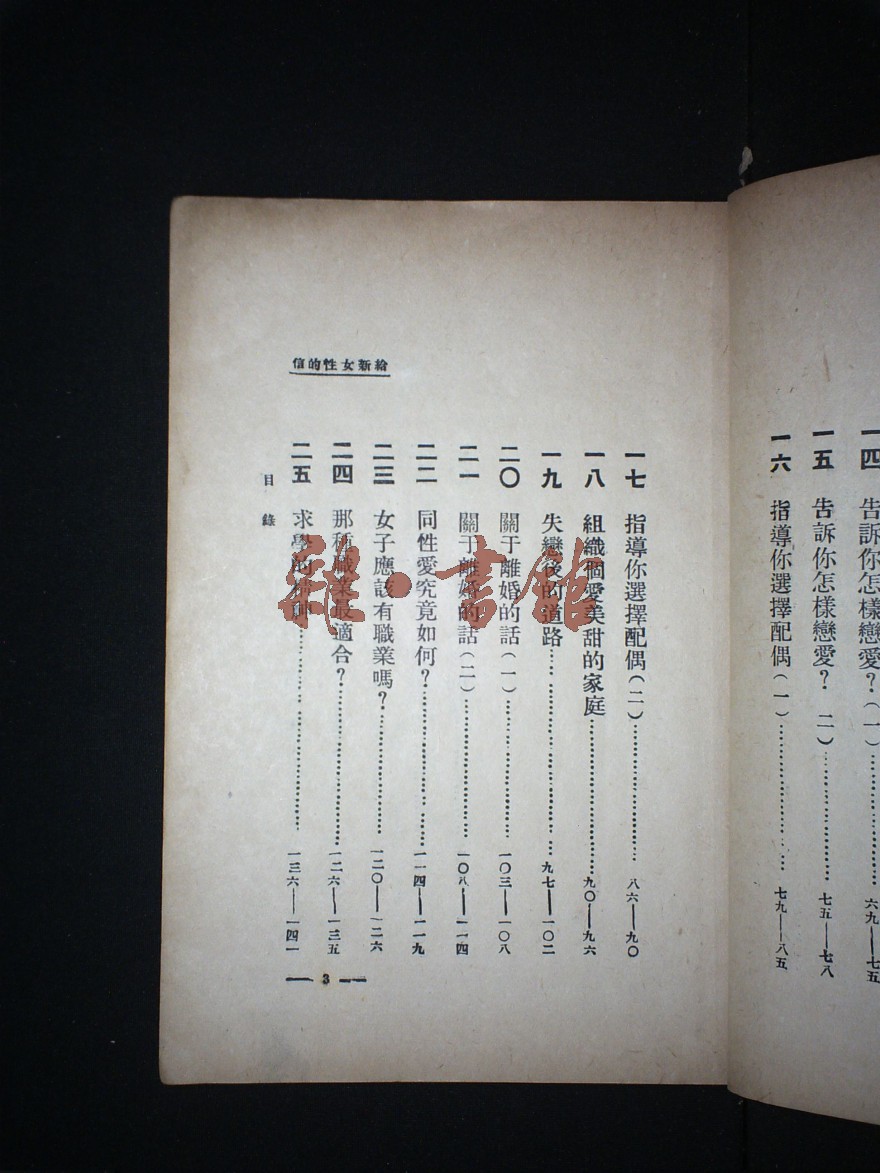 一四 告訴你怎樣戀愛？（一）……六九——七五
一五 告訴你怎樣戀愛？ 二）……七五——七八
一六 指導你選擇配偶（一）……七九——八五
信的性女新給
一七 指導你選擇配偶（二）……八六——九〇
一八 組織個愛美甜的家庭……九〇——九六
一九 失戀後的道路……九七——一〇二
二〇 關于離婚的話（一）……一〇三——一〇八
二一 關于離婚的話（二）……一〇八——一一四
二二 同性愛究竟如何？……一一四——一一九
二三 女子應該有職業嗎？……一二〇——一二六
二四 那種職業最適合？……一二六——一三五
二五 求學的精神……一三六——一四一
目錄
— 3 —
雜·書館